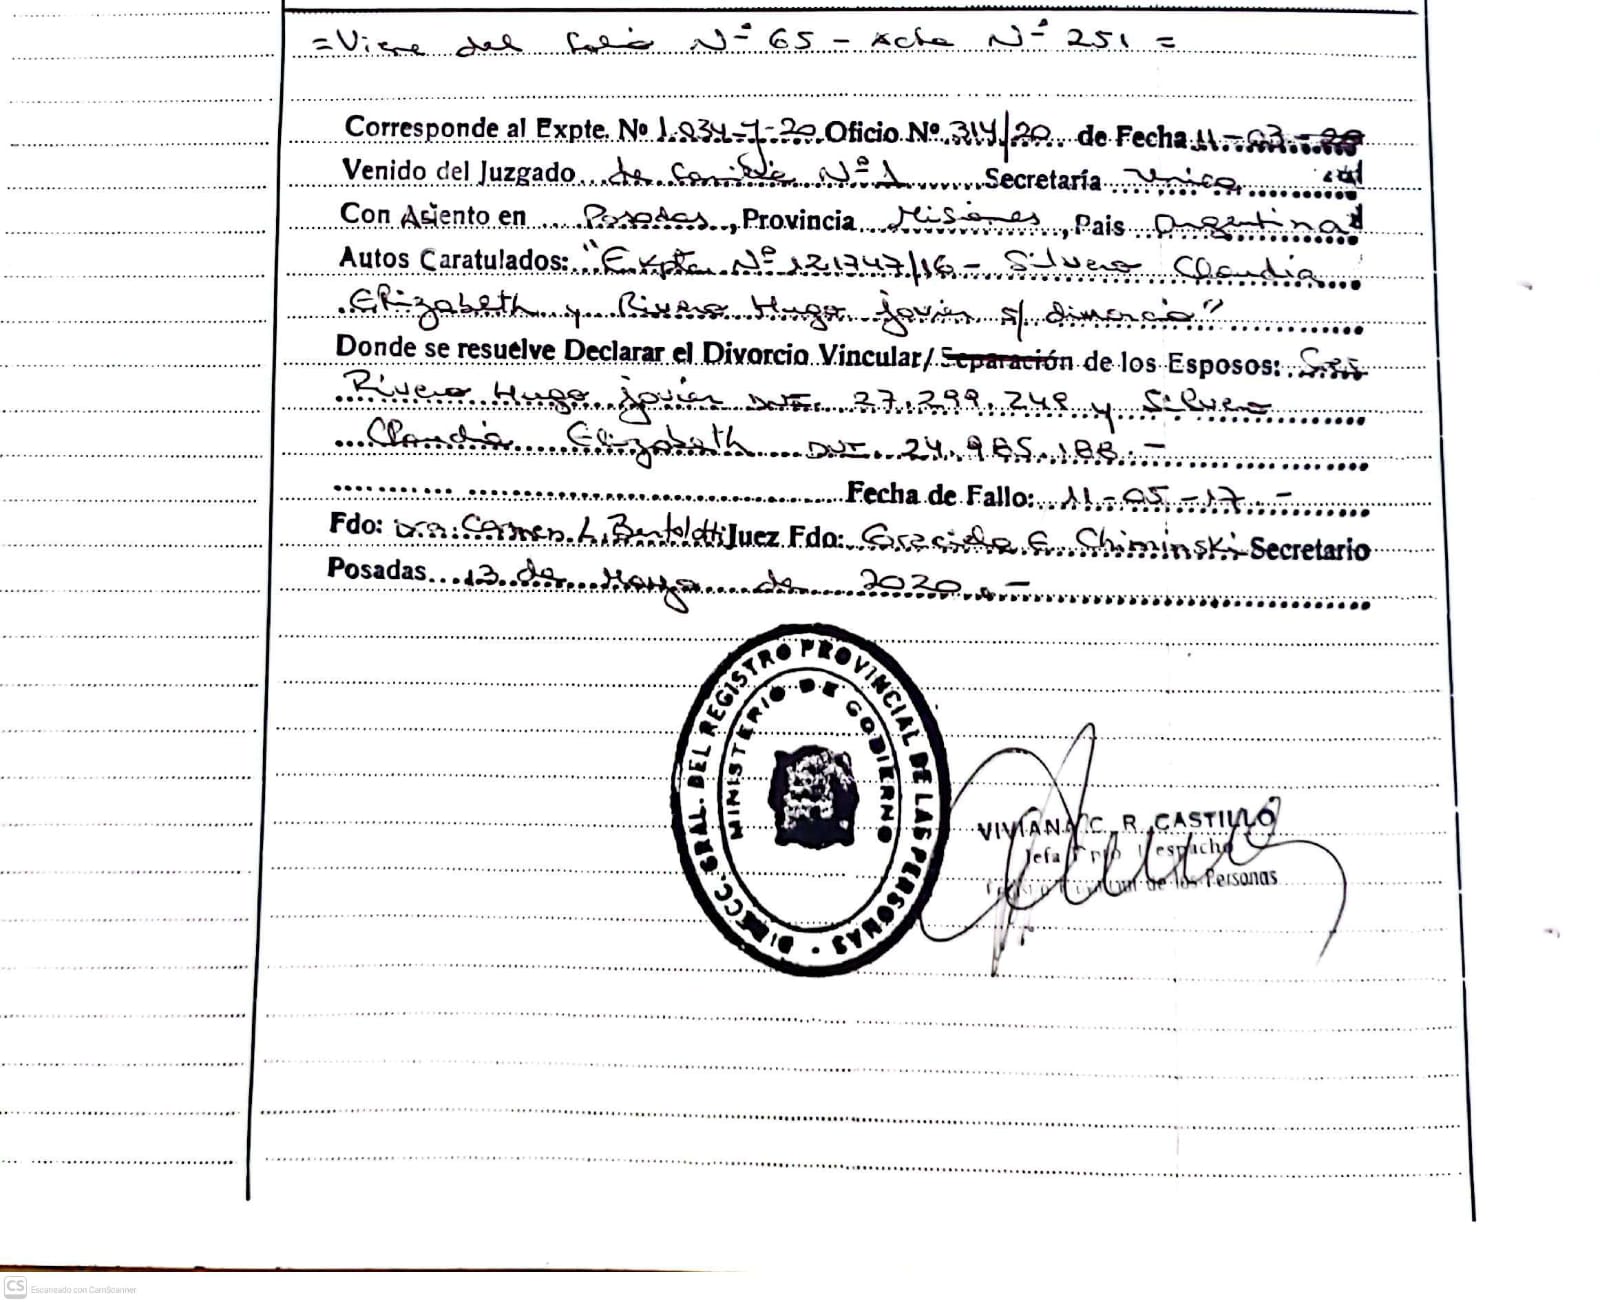 =Viene del Folio Nº 65 - Acta Nº 251 =
Corresponde al Expte. Nº 1.034-J-20 Oficio Nº 314/20 de Fecha 11-03-20
Venido del Juzgado de Familia Nº 1 Secretaría Unica
Con Asiento en Posadas, Provincia Misiones, Pais Argentina
Autos Caratulados: "Expte Nº 121747/16 - Silvero Claudia
Elizabeth y Rivero Hugo javier s/ divorcio"
Donde se resuelve Declarar el Divorcio Vincular/Separación de los Esposos:
Rivero Hugo javier DNI. 27.299.248 y Silvero
Claudia Elizabeth DNI. 24.985.188.-
Fecha de Fallo: 11-05-17.-
Fdo: Dra. Carmen L. Bertoldti Juez Fdo: Graciela E Chiminski Secretario
Posadas 13 de Marzo de 2020.-
DIRECC. GRAL. DEL REGISTRO PROVINCIAL DE LAS PERSONAS
MINISTERIO DE GOBIERNO
VIVIANA C. R. CASTILLO
Jefa Despacho
de las Personas
CS Escaneado con CamScanner